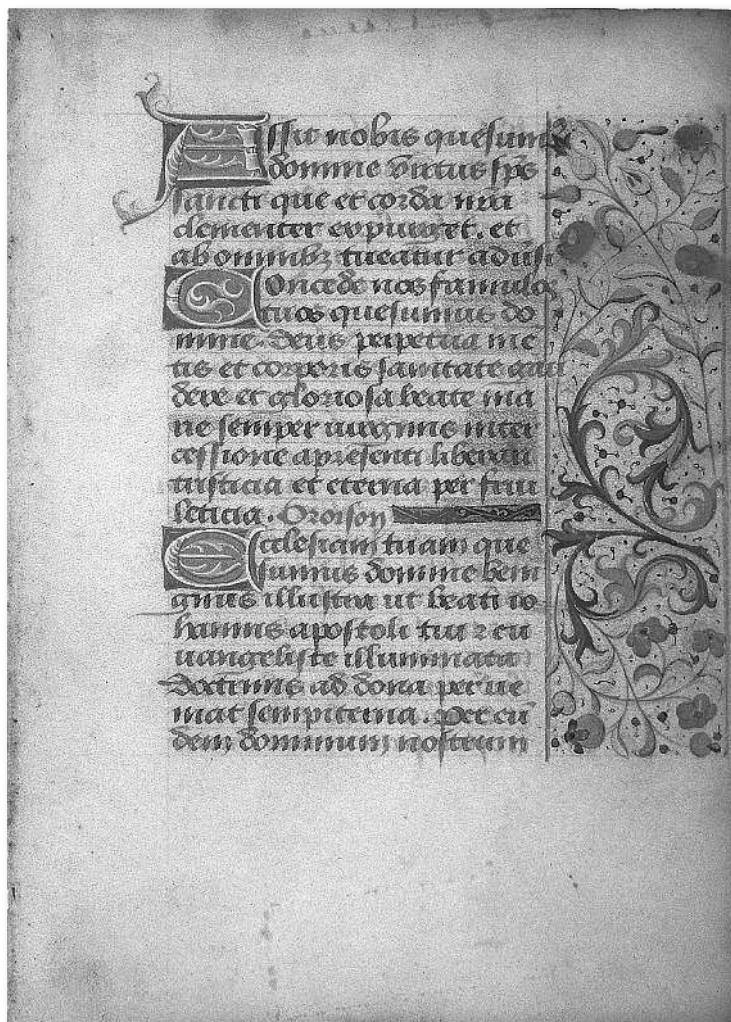 Assit nobis quesum⁹
domine virtus sp̄s
sancti que et corda nr̄a
clementer expurget. et
ab omnibꝫ tueatur aduſ
Concede nos famulos
tuos quesumus do
mine. deus perpetua me
tis et corporis sanitate gau
dere et gloriosa beate ma
rie semper uirginis inter
cessione a presenti liberari
tristicia et eterna per frui
leticia. Ororson
Ecclesiam tuam que
sumus domine beni
gnus illustra ut beati io
hannis apostoli tui ⁊ eu
uangeliste illuminata
doctrinis ad dona perue
niat sempiterna. Per eū
dem dominum nostrum